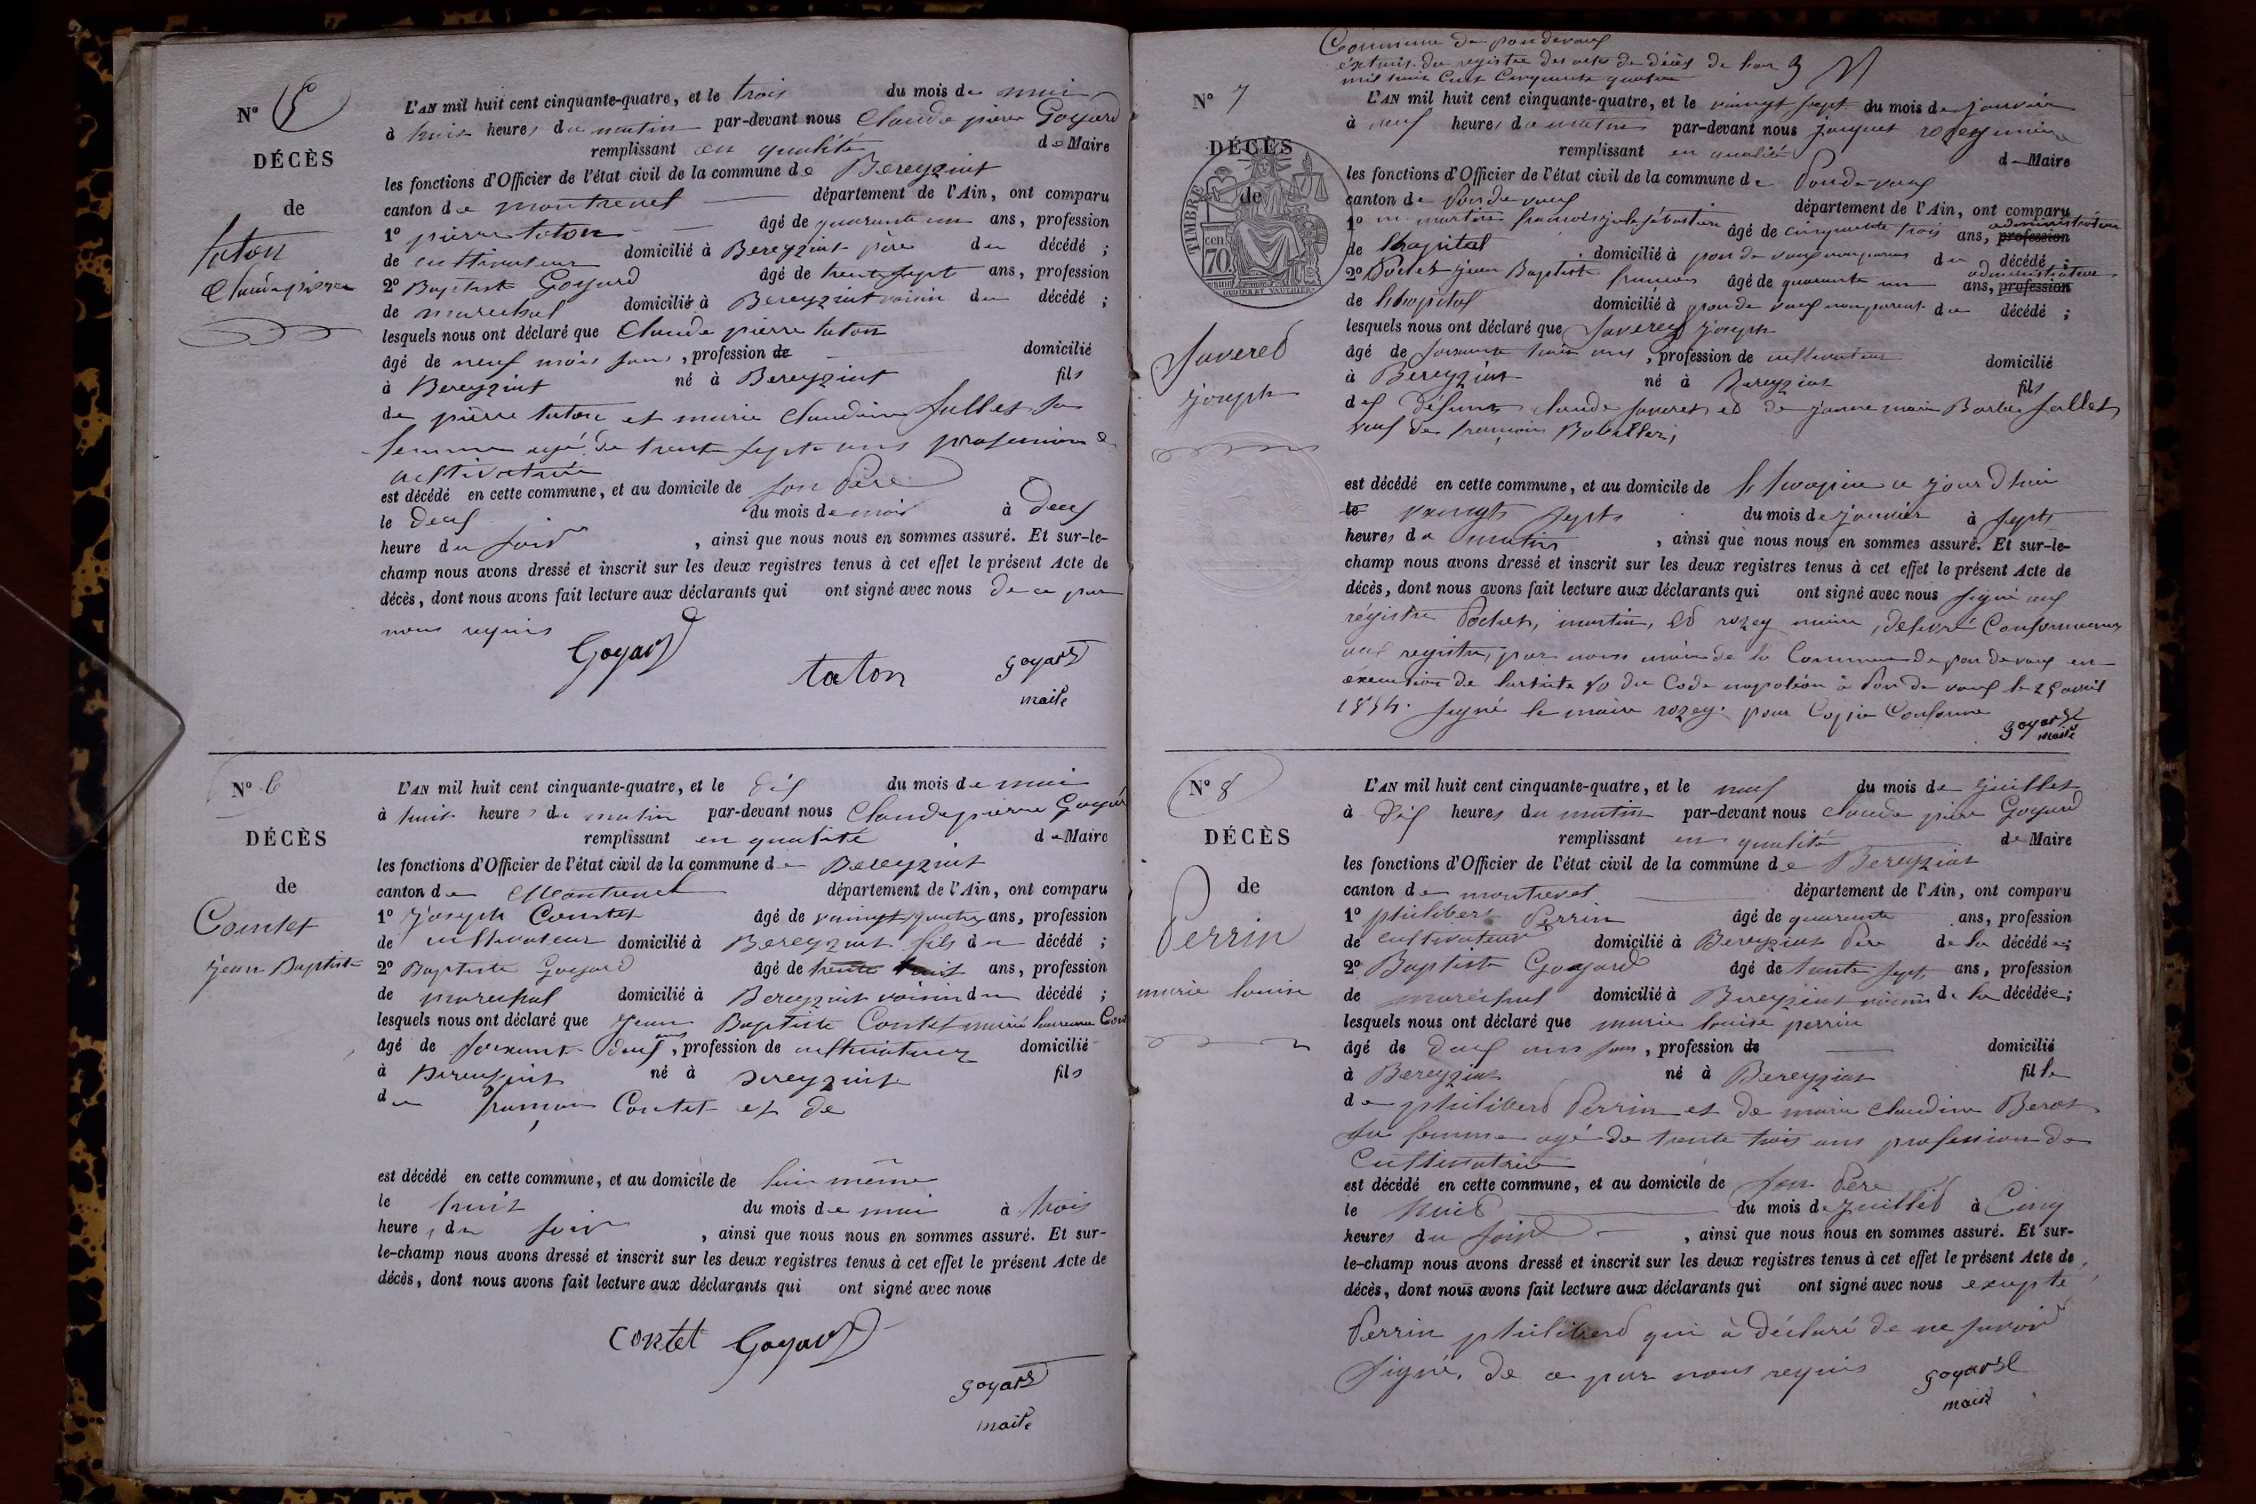 N° 5
DÉCÈS
de
taton
Claude pierre
L'AN mil huit cent cinquante-quatre, et le trois du mois de mai
à huit heures du matin par-devant nous Claude pierre Goyard
remplissant en qualité de Maire
les fonctions d'Officier de l'état civil de la commune de Bereyziat
canton de montrevel département de l'Ain, ont comparu
1° pierre taton âgé de quarante un ans, profession
de cultivateur domicilié à Bereyziat père du décédé ;
2° Baptiste Goyard âgé de trente sept ans, profession
de marechal domicilié à Bereyziat voisin du décédé ;
lesquels nous ont déclaré que Claude pierre taton
âgé de neuf mois , profession de domicilié
à Bereyziat né à Bereyziat fils
de pierre taton et marie Claudine fullet sa
femme agé de trente sept ans profession de
cultivatrice
est décédé en cette commune, et au domicile de son Père
le deux du mois de mai à deux
heure du soir , ainsi que nous nous en sommes assuré. Et sur-le-
champ nous avons dressé et inscrit sur les deux registres tenus à cet effet le présent Acte de
décès, dont nous avons fait lecture aux déclarants qui ont signé avec nous de ce par
nous requis
Goyard
taton
goyard
maire
N° 6
DÉCÈS
de
Contet
jean Baptiste
L'AN mil huit cent cinquante-quatre, et le dix du mois de mai
à huit heures du matin par-devant nous Claude pierre Goyar
remplissant en qualité de Maire
les fonctions d'Officier de l'état civil de la commune de Bereyziat
canton de Montrevel département de l'Ain, ont comparu
1° joseph Contet âgé de vaingt quatre ans, profession
de cultivateur domicilié à Bereyziat fils du décédé ;
2° Baptiste Goyard âgé de trente huit ans, profession
de marechal domicilié à Bereyziat voisin du décédé ;
lesquels nous ont déclaré que jean Baptiste Contet
âgé de soixante deux ans , profession de cultivateur domicilié
à Bereyziat né à Bereyziat fils
du françois Contet et de
est décédé en cette commune, et au domicile de lui même
le huit du mois de mai à trois
heure, du soir , ainsi que nous nous en sommes assuré. Et sur-
le-champ nous avons dressé et inscrit sur les deux registres tenus à cet effet le présent Acte de
décès, dont nous avons fait lecture aux déclarants qui ont signé avec nous
contet Goyard
goyard
maire
Commune de pondevaux
extrait du registre des actes de décès de l'an
mil huit Cent Cinquante quatre
N° 7
DÉCÈS
de
TIMBRE
70
cen
Saveret
joseph
L'AN mil huit cent cinquante-quatre, et le vaingt sept du mois de janvier
à neuf heures du matin par-devant nous jacques rozey maire
remplissant en qualité de Maire
les fonctions d'Officier de l'état civil de la commune de Pondevaux
canton de Pondevaux département de l'Ain, ont comparu
1° m. martin françois jule sébastien âgé de cinquante trois ans, profession administrateur
de l'hopital domicilié à pondevaux non parent du décédé ;
2° Pochet jean Baptiste françois âgé de quarante un ans, profession administrateur
de l'hopital domicilié à pondevaux non parent du décédé ;
lesquels nous ont déclaré que Saveret joseph
âgé de soixante trois ans , profession de cultivateur domicilié
à Bereyziat né à Bereyziat fils
des défunts claude saveret et de jeanne marie Barbe fallet
veuf de françoise
est décédé en cette commune, et au domicile de l'hospice ce jourd'hui
le vaingt sept du mois de janvier à sept
heures du matin , ainsi que nous nous en sommes assuré. Et sur-le-
champ nous avons dressé et inscrit sur les deux registres tenus à cet effet le présent Acte de
décès, dont nous avons fait lecture aux déclarants qui ont signé avec nous signé aux
régistre Pochet, martin, et rozey maire, délivré Conformement
aux registre, par nous maire de la Commune de pondevaux en
éxecution de l'article 80 du Code napoléon à Pondevaux le 25 avril
1854. signé le maire rozey. pour Copie Conforme
goyard
maire
N° 8
DÉCÈS
de
Perrin
marie louise
L'AN mil huit cent cinquante-quatre, et le neuf du mois de juillet
à dix heures du matin par-devant nous claude pierre Goyard
remplissant en qualité de Maire
les fonctions d'Officier de l'état civil de la commune de Bereyziat
canton de montrevel département de l'Ain, ont comparu
1° philibert Perrin âgé de quarente ans, profession
de cultivateur domicilié à Bereyziat Père de la décédée ;
2° Baptiste Goyard âgé de trente sept ans, profession
de maréchal domicilié à Bereyziat voisin de la décédée ;
lesquels nous ont déclaré que marie louise perrin
âgé de deux ans , profession de domicilié
à Bereyziat né à Bereyziat fille
de philiberd Perrin et de marie claudine Beros
sa femme agé de trente trois ans profession de
Cultivatrice
est décédé en cette commune, et au domicile de son Père
le huit du mois de juillet à Cinq
heures du soir , ainsi que nous nous en sommes assuré. Et sur-
le-champ nous avons dressé et inscrit sur les deux registres tenus à cet effet le présent Acte de
décès, dont nous avons fait lecture aux déclarants qui ont signé avec nous exepte
Perrin philiberd qui à déclaré de ne savoir
signé, de ce par nous requis
goyard
maire